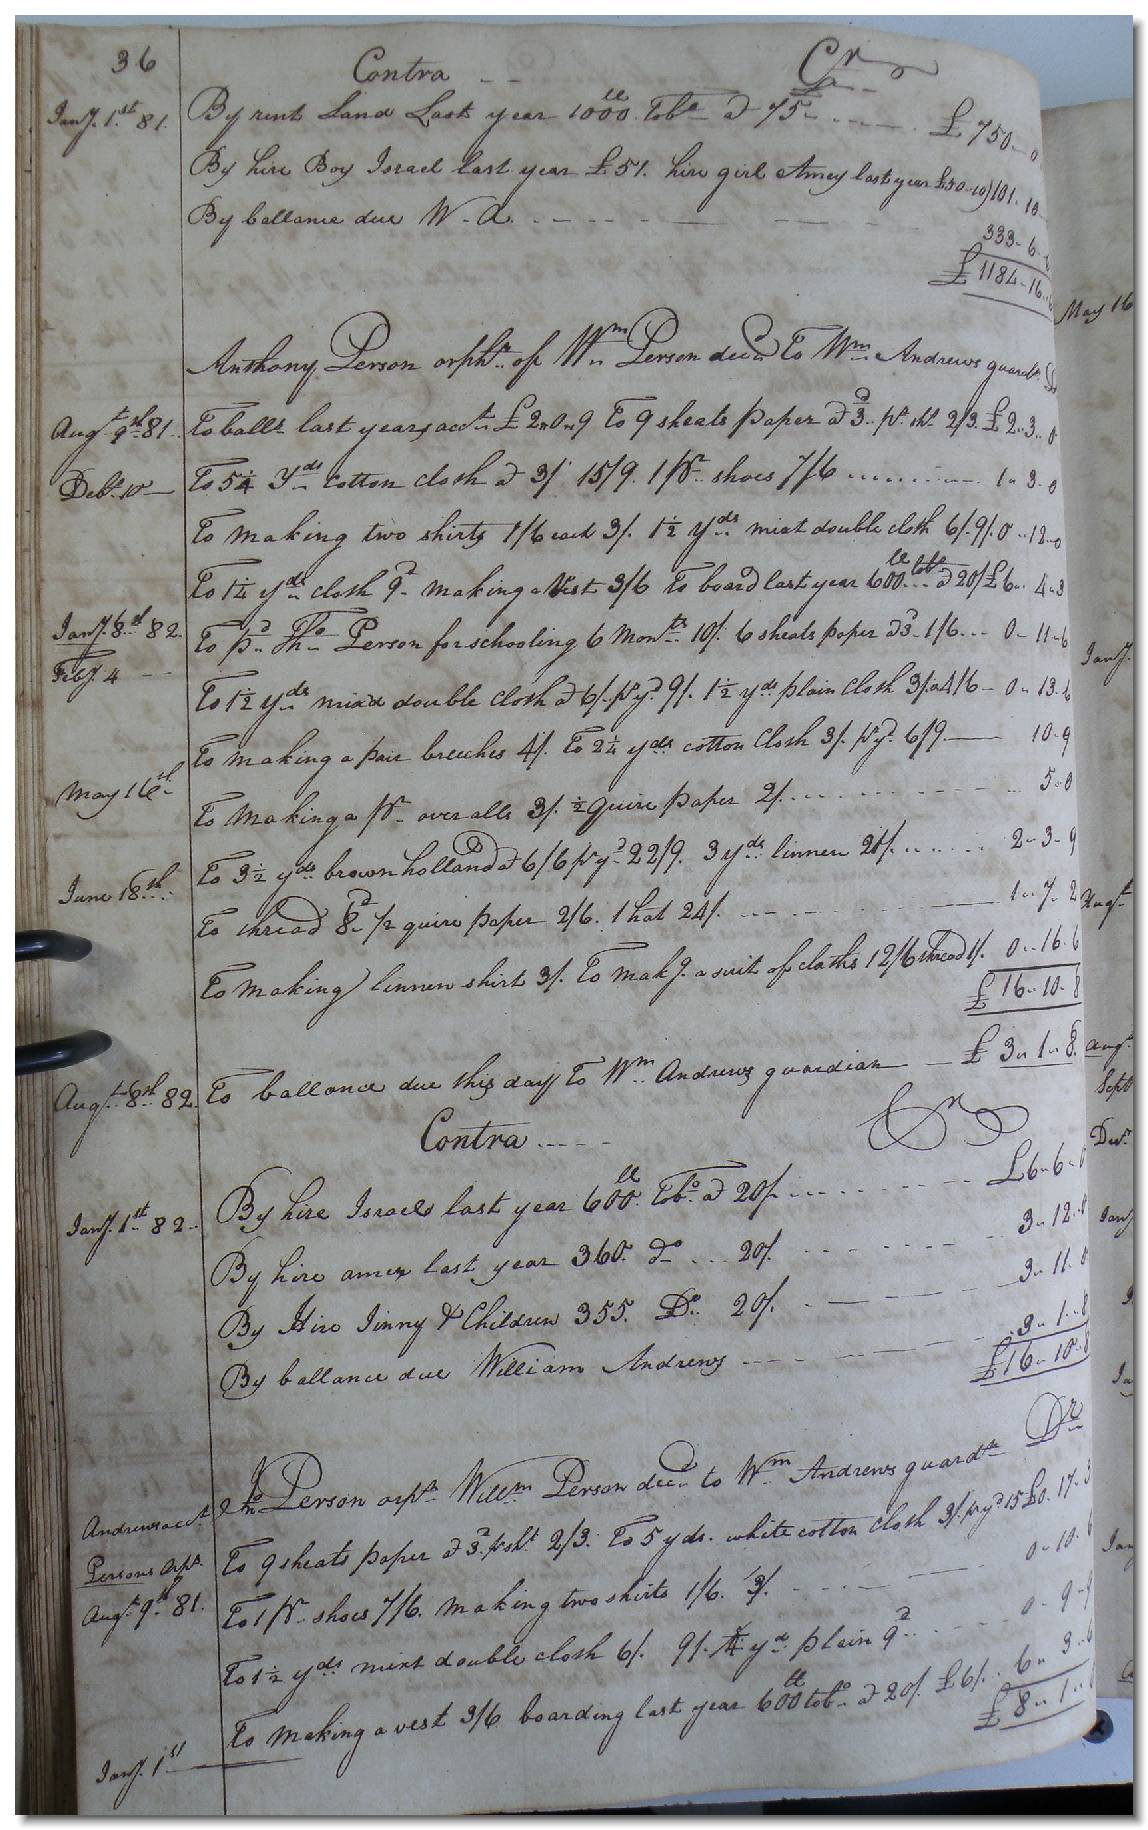 36 Contra -- Cr
Jany. 1st 81. By rent Land Last year 1000 lb Tobo @ 75/ £ 750..0
By hire Boy Israel last year £51. hire girl Amey last year £50-10) 101. 10
By ballance due W. A. 333-6-
£ 1184-16-6
May 16
Anthony Person orphn. of Wm Person decd To Wm Andrews guardn. Dr
Augt 9th 81. To balle last years acct £2"0"9 To 9 sheats paper @ 3d pr sht 2/3. £2..3..0
Debr. 10 To 5¼ Yds cotton cloth @ 3/ 15/9. 1 pr shoes 7/6 1" 3-0
To making two shirts 1/6 each 3/. 1½ yds mixt double cloth 6/. 9/. 0..12..0
To 1¼ yds cloth 9d making a Vest 3/6 To board last year 600 lb tobo @ 20/ £6.. 4-3
Jany. 8d 82. To pd Tho Person for schooling 6 Monts 10/. 6 sheats paper @ 3d 1/6... 0-11-6
Feby. 4 -- To 1½ yds mixd double cloth @ 6/. pr yd. 9/. 1½ yd plain cloth 3/. 4/6 - 0.. 13-6
To making a pair breeches 4/. To 2¼ yds cotton Cloth 3/. pr yd. 6/9 10-9
May 16th To making a pr over alls 3/. ½ quire paper 2/. 5-0
To 3½ yds brown holland @ 6/6 pr yd 22/9. 3 yds linnen 21/. 2-3-9
June 18th To thread 8d ½ quire paper 2/6. 1 hat 24/. 1..7..2
To making linnen shirt 3/. To makg. a suit of cloths 12/6 thread 1/. 0..16.6
£ 16-10-8
£ 3"1"8
Augt 8th 82. To ballance due this day To Wm Andrews guardian
Contra Cr
Jany. 1st 82. By hire Israel last year 600 lb Tobo @ 20/. £6-6-0
By hire amey last year 360. Do ... 20/. 3..12.0
By Hire Jinny & Children 355. Do.. 20/. 3..11.0
By ballance due William Andrews 3..1..8
£16-10-8
Andrews acct Jno Person orpn. Willm Person decd to Wm Andrews guardn Dr
Persons orpn. To 9 sheats paper @ 3d. pr sht. 2/3. To 5 yds. white cotton cloth 3/. pr yd 15 £0. 17-3
Augt. 9th 81. To 1 pr. shoes 7/6. making two shirts 1/6. 3/. 0-10.6
To 1½ yds mixt double cloth 6/. 9/. ¼ yd plain 9d 0-9-9
To making a vest 3/6. boarding last year 600 lb tobo. @ 20/. £6/. 6.. 3..6
£ 8..1..
Jany. 1st